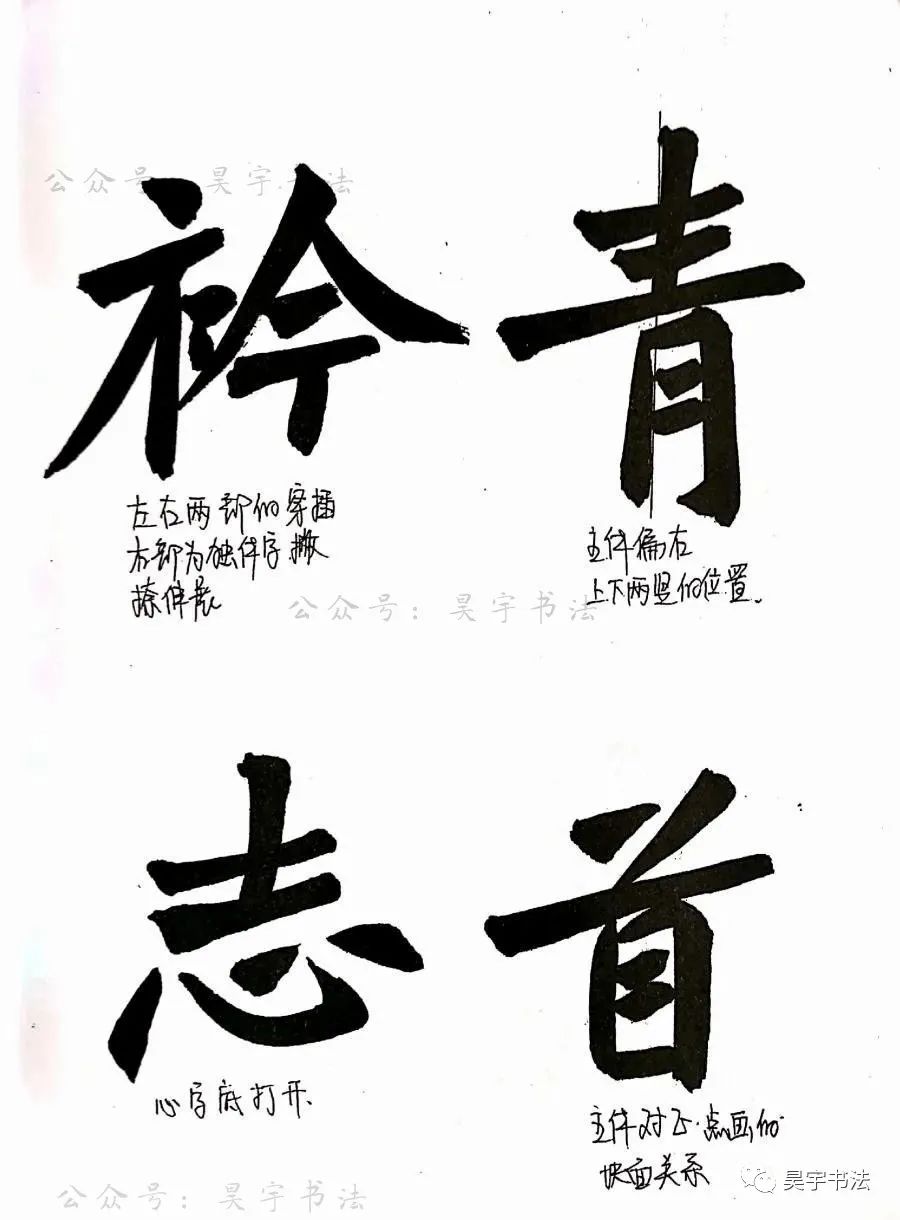 公众号：昊宇书法
青
衿
主体偏右
上下两竖的位置。
左右两部的穿插
右部为独体字撇
捺伸展
公众号：昊宇书法
首
志
主体对正·点画的
块面关系
心字底打开、
公众号：昊宇书法
昊宇书法